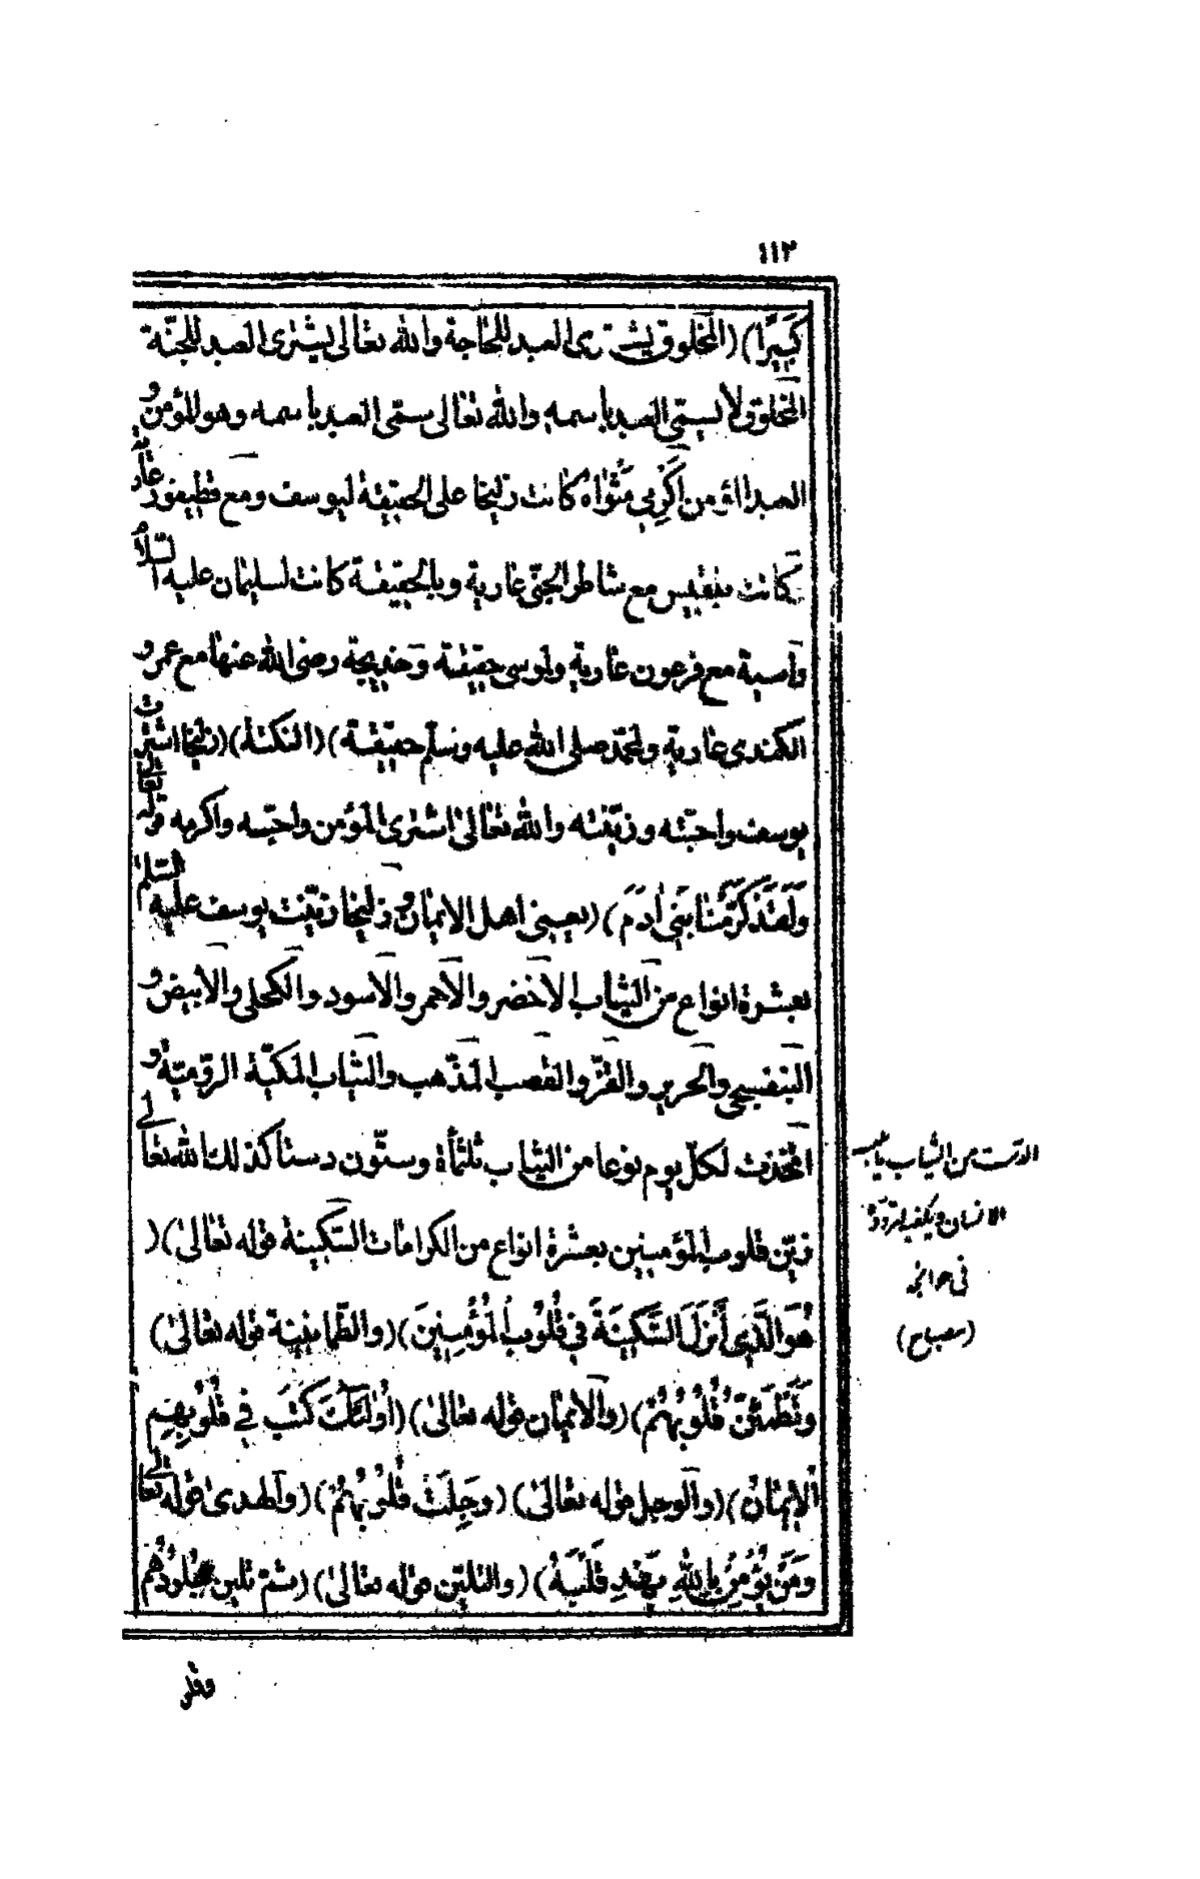 ١١٢
كَبِيرًا) (المخلوق يشترى العبد للحاجة والله تعالى يشترى العبد للجنّة
المخلوق لا يسمّى العبد باسمه والله تعالى سمّى العبد باسمه وهو المؤمن و
العبد المؤمن اَكْرِمِي مَثْوَاهُ كانت زليخا على الحقيقة ليوسف ومع قطيفور عارية
كانت بلقيس مع شاطر الجنّى عارية وبالحقيقة كانت لسليمان عليه السّلام
وآسية مع فرعون عارية ولموسى حقيقة وخديجة رضى الله عنها مع عمرو
الكندى عارية ولمحمّد صلى الله عليه وسلّم حقيقة) (النكتة) (زليخا اشترت
يوسف واحبّته وزيّنته والله تعالى اشترى المؤمن واحبّه واكرمه قوله تعالى
وَلَقَدْ كَرَّمْنَا بَنِي اٰدَمَ) (يعنى اهل الايمان وزليخا زيّنت يوسف عليه السّلام
بعشرة انواع من الثياب الاخضر والاحمر والاسود والكحلى والابيض و
البنفسجى والحرير والقزّ والقصب المذّهب والثياب المكيّة الروميّة و
اتّخذت لكلّ يوم نوعا من الثياب ثلثمأة وستّون دستا كذلك الله تعالى
زيّن قلوب المؤمنين بعشرة انواع من الكرامات السّكينة قوله تعالىٰ) (
هُوَ الَّذِي أَنْزَلَ السَّكِينَةَ فِي قُلُوبِ الْمُؤْمِنِينَ) (والطّمانينة قوله تعالىٰ)
وَتَطْمَئِنُّ قُلُوبُهُمْ) (والايمان قوله تعالىٰ) (اُولٰئِكَ كَتَبَ فِي قُلُوبِهِمِ
الْاِيمَانَ) (والوجل قوله تعالىٰ) (وَجِلَتْ قُلُوبُهُمْ) (والهدىٰ قوله تعالى
وَمَنْ يُؤْمِنْ بِاللهِ يَهْدِ قَلْبَهُ) (والتليّن قوله تعالىٰ) (ثمّ تلين جُلُودُهُمْ
الدّست من الثياب ما يلبسه
الانسان ويكفيه لتردّده
فى حوائجه
(مصباح)